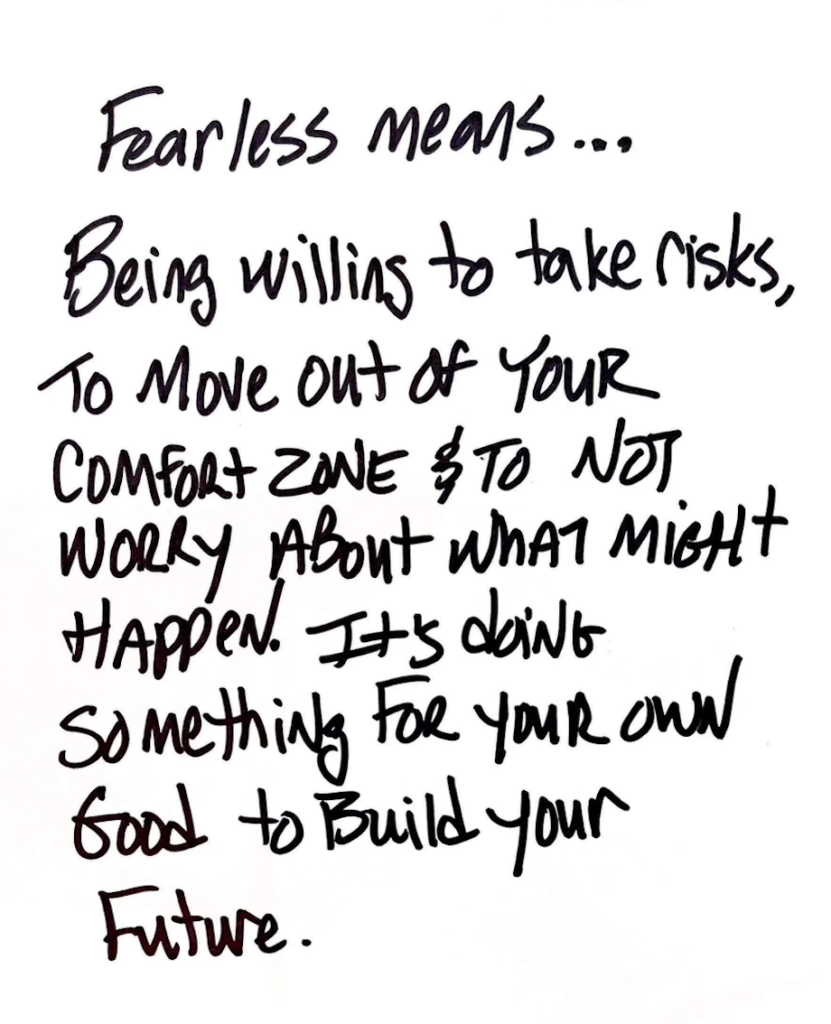 Fearless means...
Being willing to take risks,
To Move out of YOUR
COMfORt ZONE & TO NOT
WORRY ABout WhAT MiGHt
HAppeN. It's doiNG
SomethiNg FOR YOUR OWN
Good to Build your
Future.